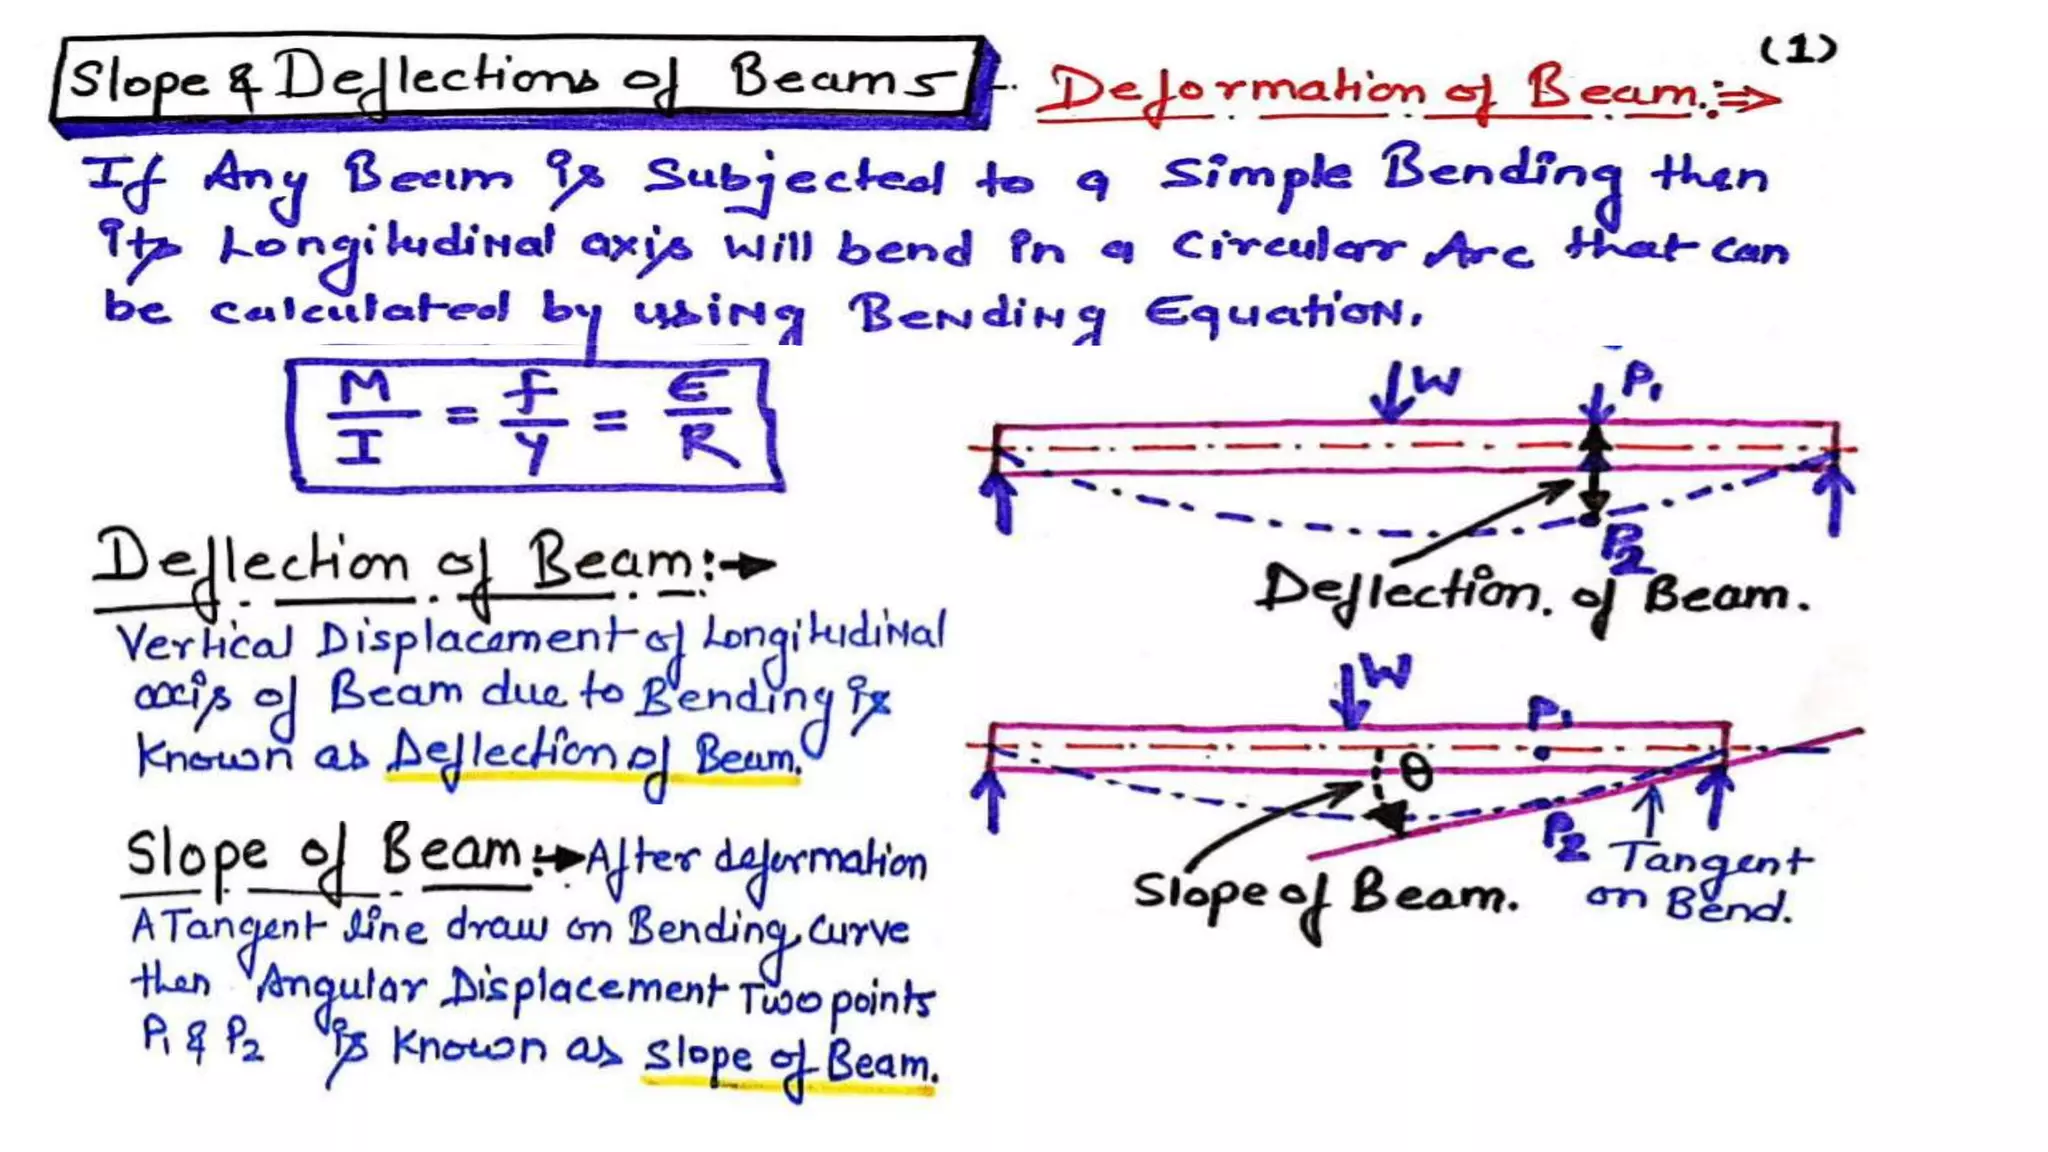 Slope & Deflections of Beams
Deformation of Beam :⇒
(1)
If Any Beam is Subjected to a Simple Bending then
its Longitudinal axis will bend in a Circular Arc that can
be calculated by using Bending Equation.
M/I = f/Y = E/R
Deflection of Beam :→
Vertical Displacement of Longitudinal
axis of Beam due to Bending is
Known as Deflection of Beam.
Slope of Beam :→ After deformation
A Tangent line draw on Bending Curve
then Angular Displacement Two points
P₁ & P₂ is Known as Slope of Beam.
W
P₁
P₂
Deflection. of Beam.
W
P₁
θ
P₂
Tangent
on Bend.
Slope of Beam.